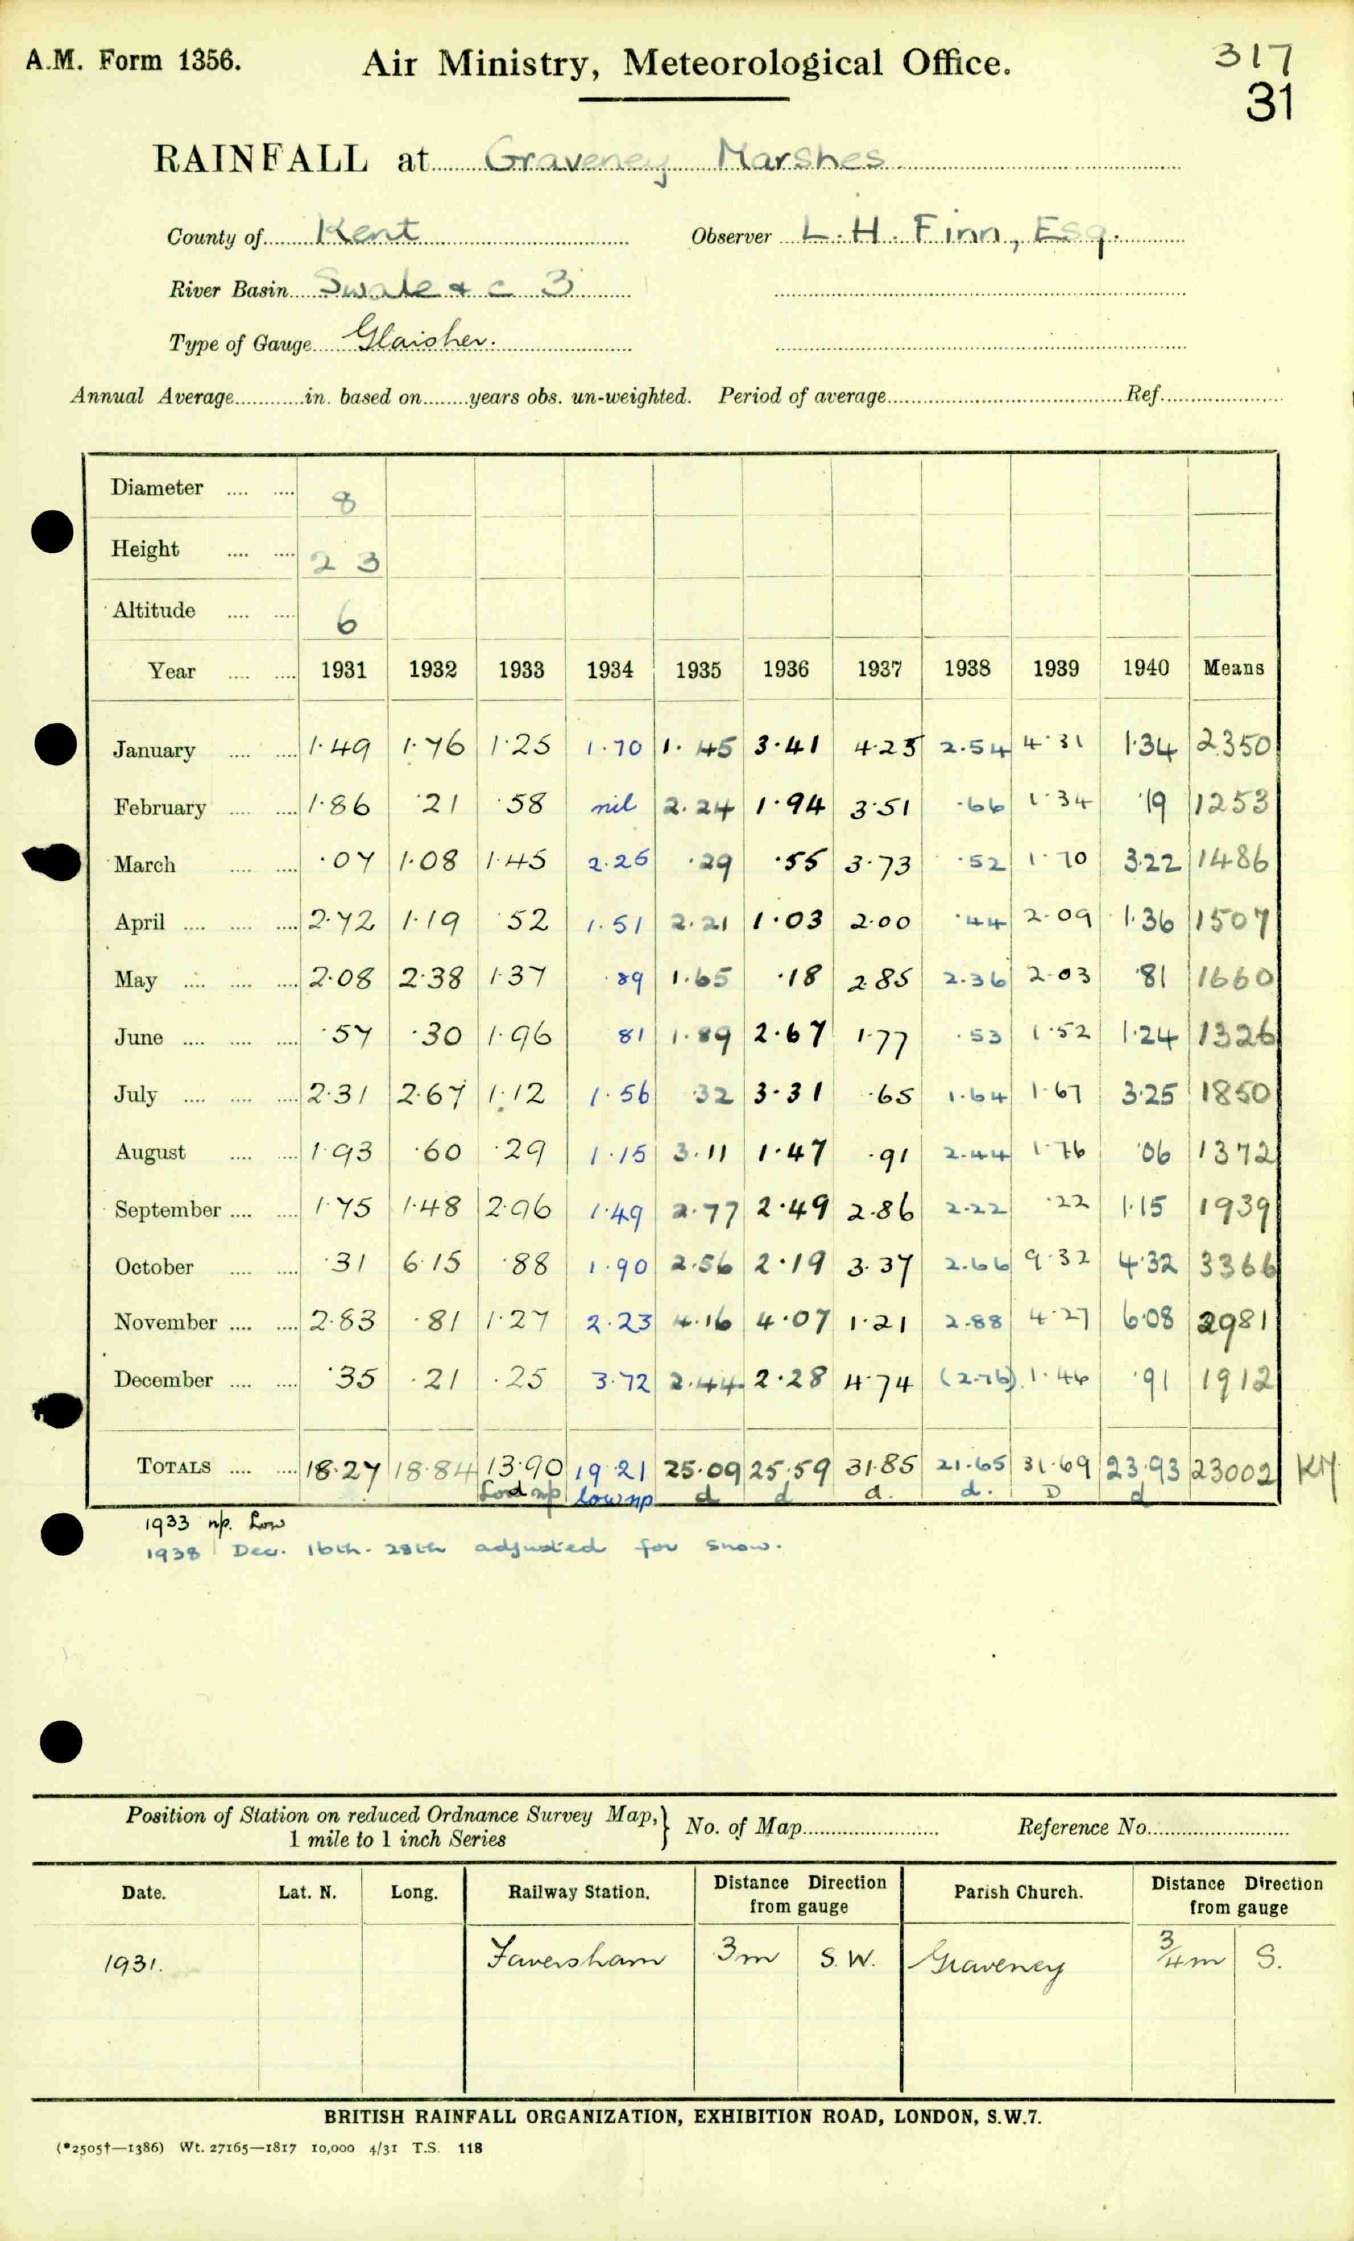 A.M. Form 1356.
Air Ministry, Meteorological Office.
317
31
RAINFALL at Graveney Marshes
County of Kent Observer L. H. Finn, Esq.
River Basin Swale & c 3
Type of Gauge Glaisher.
Annual Average in. based on years obs. un-weighted. Period of average Ref.
Diameter 8
Height 2 3
Altitude 6
Year 1931 1932 1933 1934 1935 1936 1937 1938 1939 1940 Means
January 1·49 1·76 1·25 1·70 1·45 3·41 4·25 2·54 4·31 1·34 2350
February 1·86 ·21 ·58 nil 2·24 1·94 3·51 ·66 1·34 ·19 1253
March ·07 1·08 1·45 2·25 ·29 ·55 3·73 ·52 1·70 3·22 1486
April 2·72 1·19 ·52 1·51 2·21 1·03 2·00 ·44 2·09 1·36 1507
May 2·08 2·38 1·37 ·89 1·65 ·18 2·85 2·36 2·03 ·81 1660
June ·57 ·30 1·96 81 1·89 2·67 1·77 ·53 1·52 1·24 1326
July 2·31 2·67 1·12 1·56 ·32 3·31 ·65 1·64 1·67 3·25 1850
August 1·93 ·60 ·29 1·15 3·11 1·47 ·91 2·44 1·76 ·06 1372
September 1·75 1·48 2·96 1·49 2·77 2·49 2·86 2·22 ·22 1·15 1939
October ·31 6·15 ·88 1·90 2·56 2·19 3·37 2·66 9·32 4·32 3366
November 2·83 ·81 1·27 2·23 4·16 4·07 1·21 2·88 4·27 6·08 2981
December ·35 ·21 ·25 3·72 2·44 2·28 4·74 (2·76) 1·46 ·91 1912
TOTALS 18·27 18·84 13·90 19·21 25·09 25·59 31·85 21·65 31·69 23·93 23002
low np d d d. d. D d
1933 np. Low
1938 Dec. 16th - 28th adjusted for snow.
Position of Station on reduced Ordnance Survey Map, } No. of Map Reference No.
1 mile to 1 inch Series
Date. Lat. N. Long. Railway Station. Distance Direction from gauge Parish Church. Distance Direction from gauge
1931. Faversham 3m S.W. Graveney 3/4m S.
BRITISH RAINFALL ORGANIZATION, EXHIBITION ROAD, LONDON, S.W.7.
(*2505†—1386) Wt. 27165—1817 10,000 4/31 T.S. 118